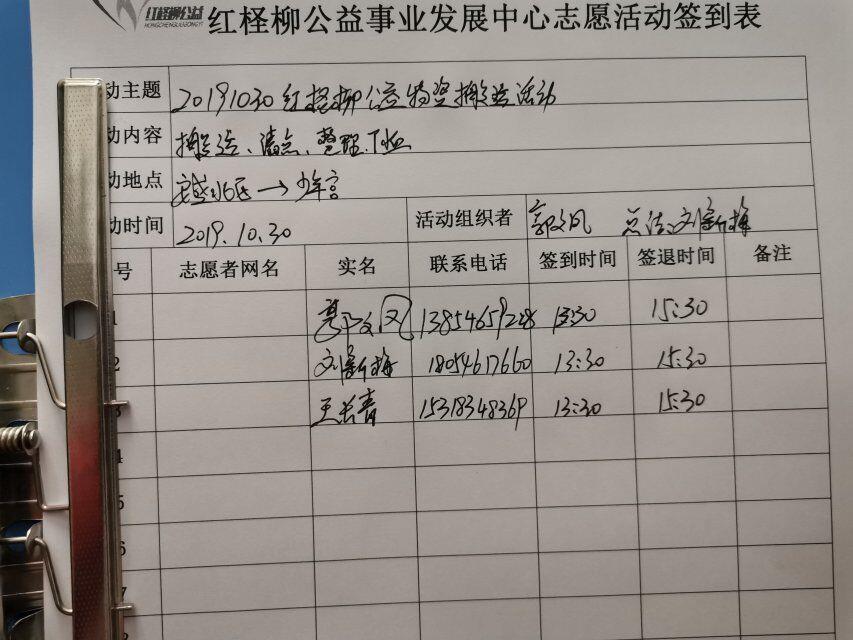 红柽柳公益
HONGCHENGLIUGONGYI
红柽柳公益事业发展中心志愿活动签到表
动主题 20191030红柽柳公益物资搬运活动
动内容 搬运、清点、整理
动地点 →少年宫
动时间 2019.10.30 活动组织者 郭文凤 刘新梅
号 志愿者网名 实名 联系电话 签到时间 签退时间 备注
1 郭文凤 13854659228 13:30 15:30
2 刘新梅 18054617660 13:30 15:30
3 王长青 15318348369 13:30 15:30
4
5
6
7